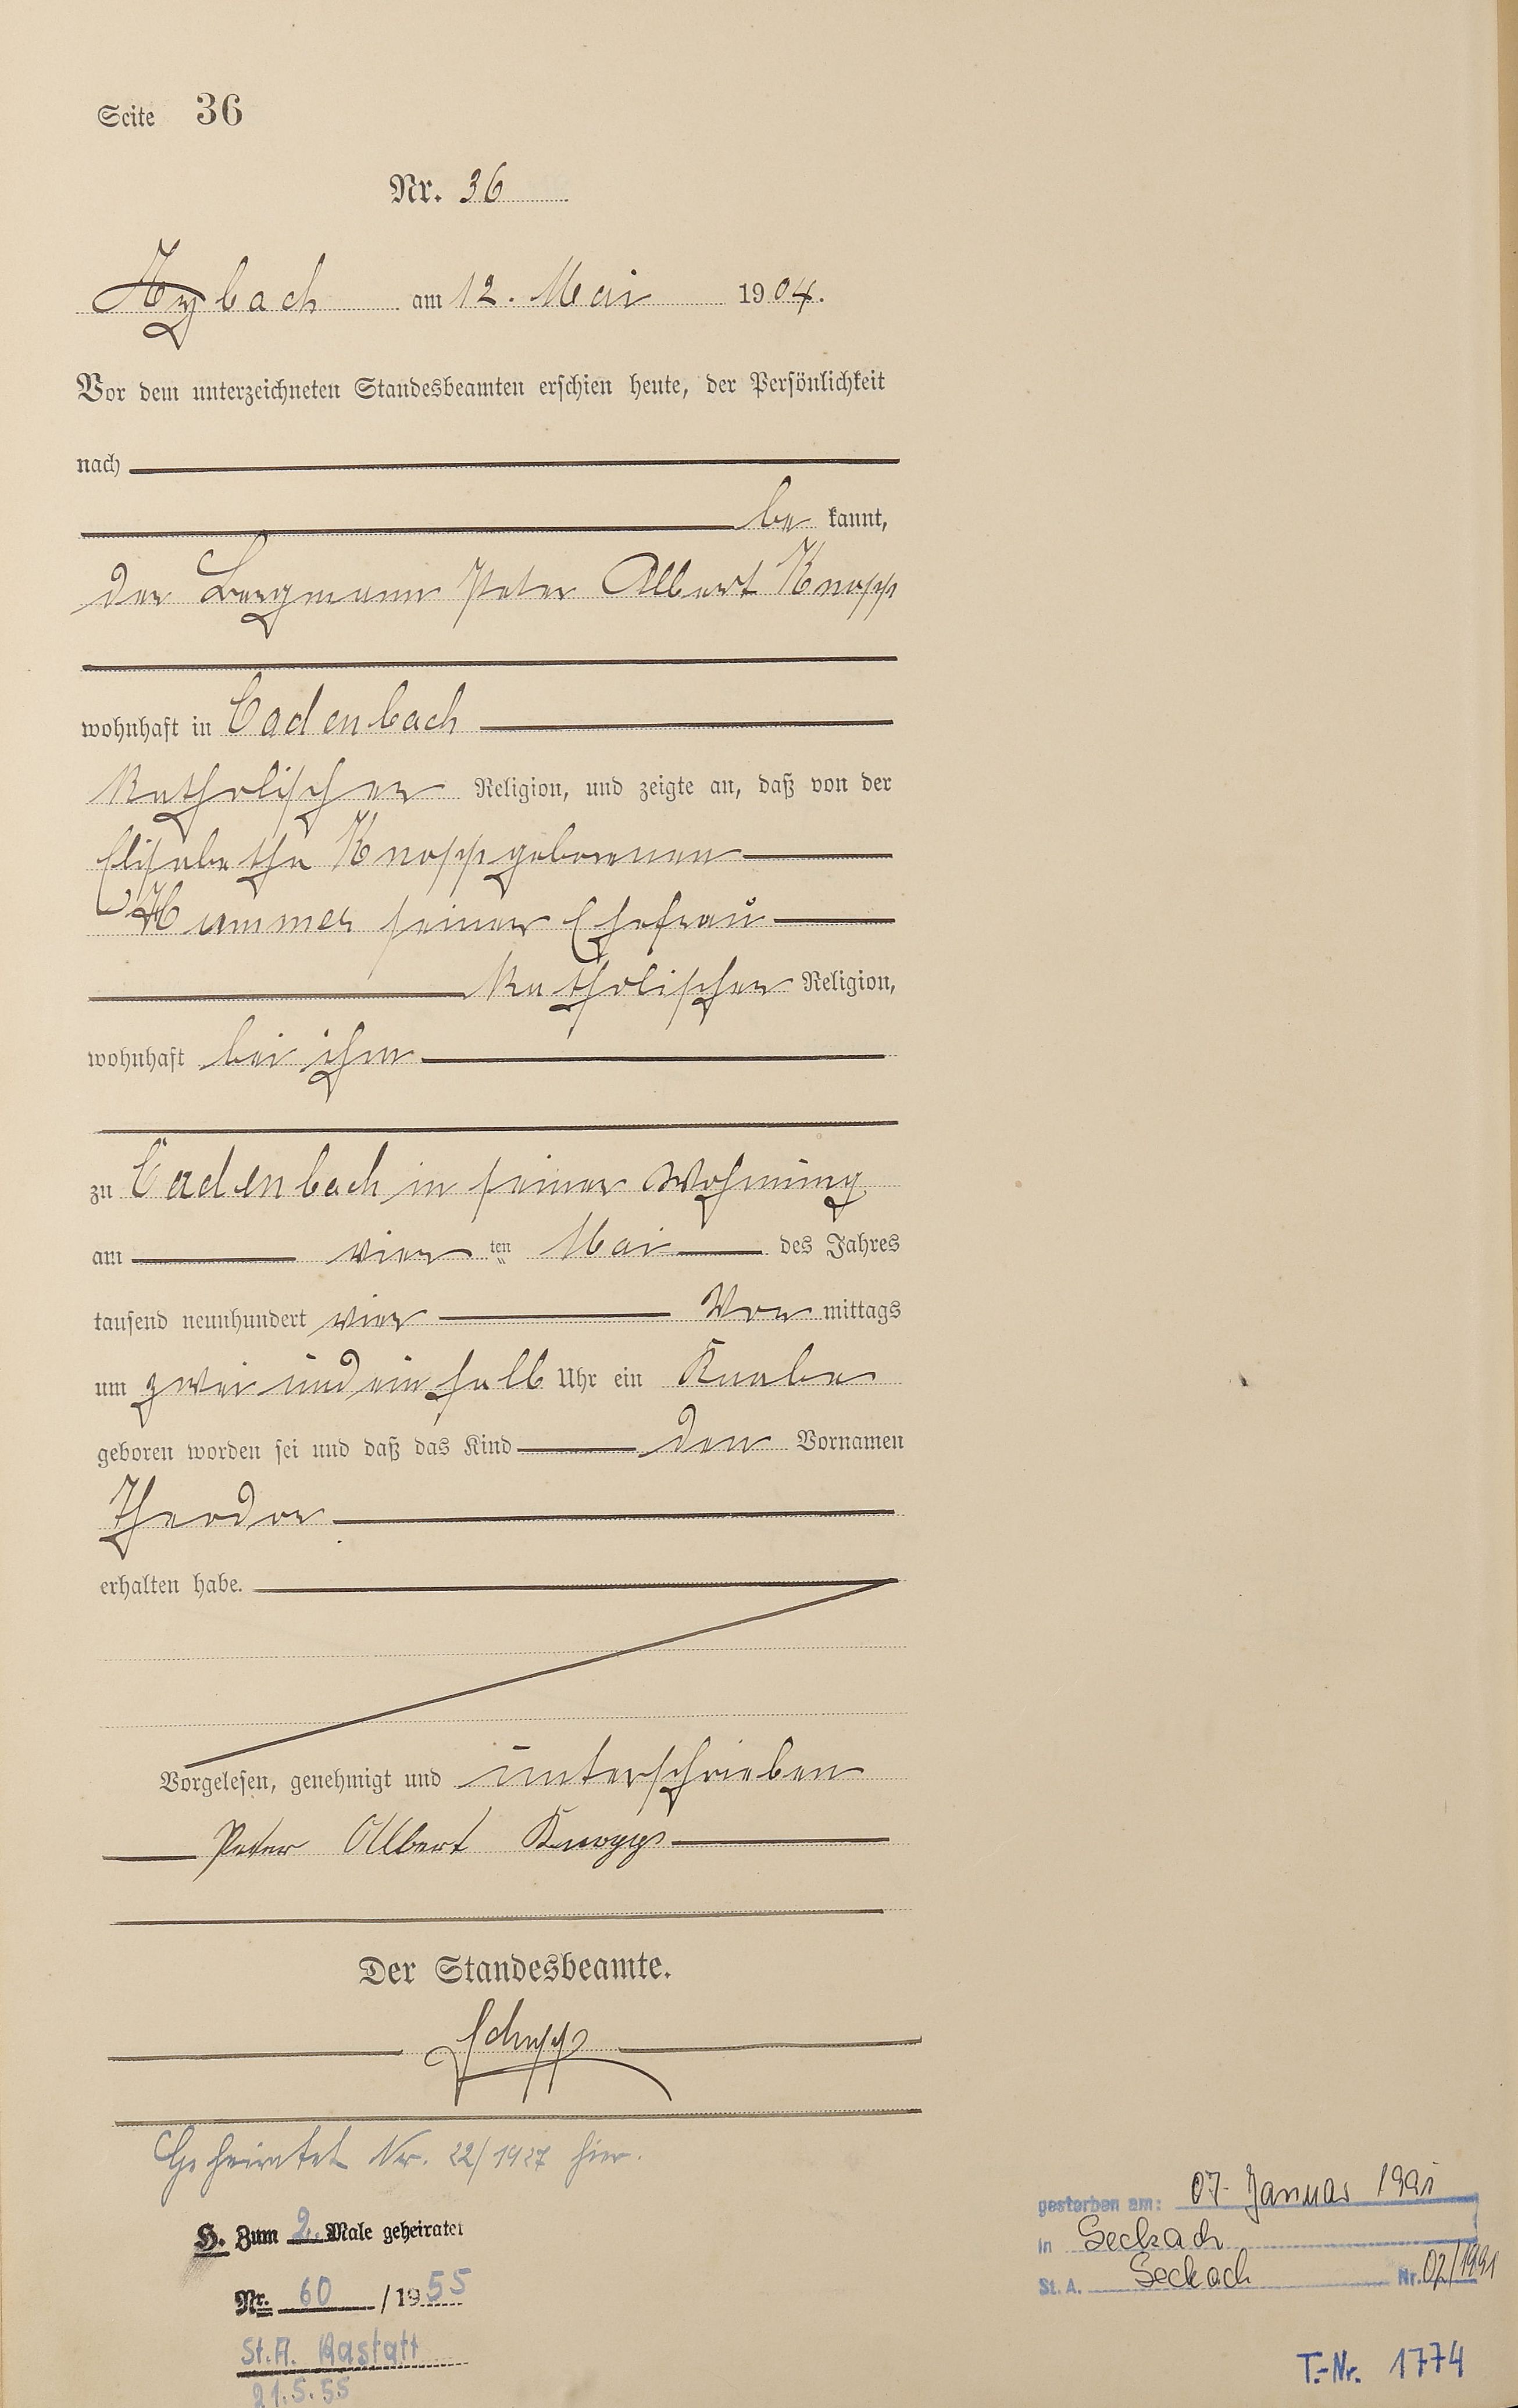 Seite 36
Nr. 36
Arzbach am 12. Mai 1904.
Vor dem unterzeichneten Standesbeamten erschien heute, der Persönlichkeit
nach
be kannt,
der Bergmann Peter Albert Knopp
wohnhaft in Cadenbach
katholischer Religion, und zeigte an, daß von der
Elisabetha Knopp geborenen
Hummer seiner Ehefrau
katholischer Religion,
wohnhaft bei ihm
zu Cadenbach in seiner Wohnung
am vier ten Mai des Jahres
tausend neunhundert vier Vor mittags
um zwei und ein halb Uhr ein Knabe
geboren worden sei und daß das Kind den Vornamen
Theodor
erhalten habe.
Vorgelesen, genehmigt und unterschrieben
Peter Albert Knopp
Der Standesbeamte.
Schupp
Geheiratet Nr. 22/1927 hier.
H. Zum 2. Male geheiratet
Nr. 60 / 1955
St.A. Rastatt
21.5.55
gestorben am: 07. Januar 1991
in Seckach
St. A. Seckach Nr. 02/1991
T.-Nr. 1774